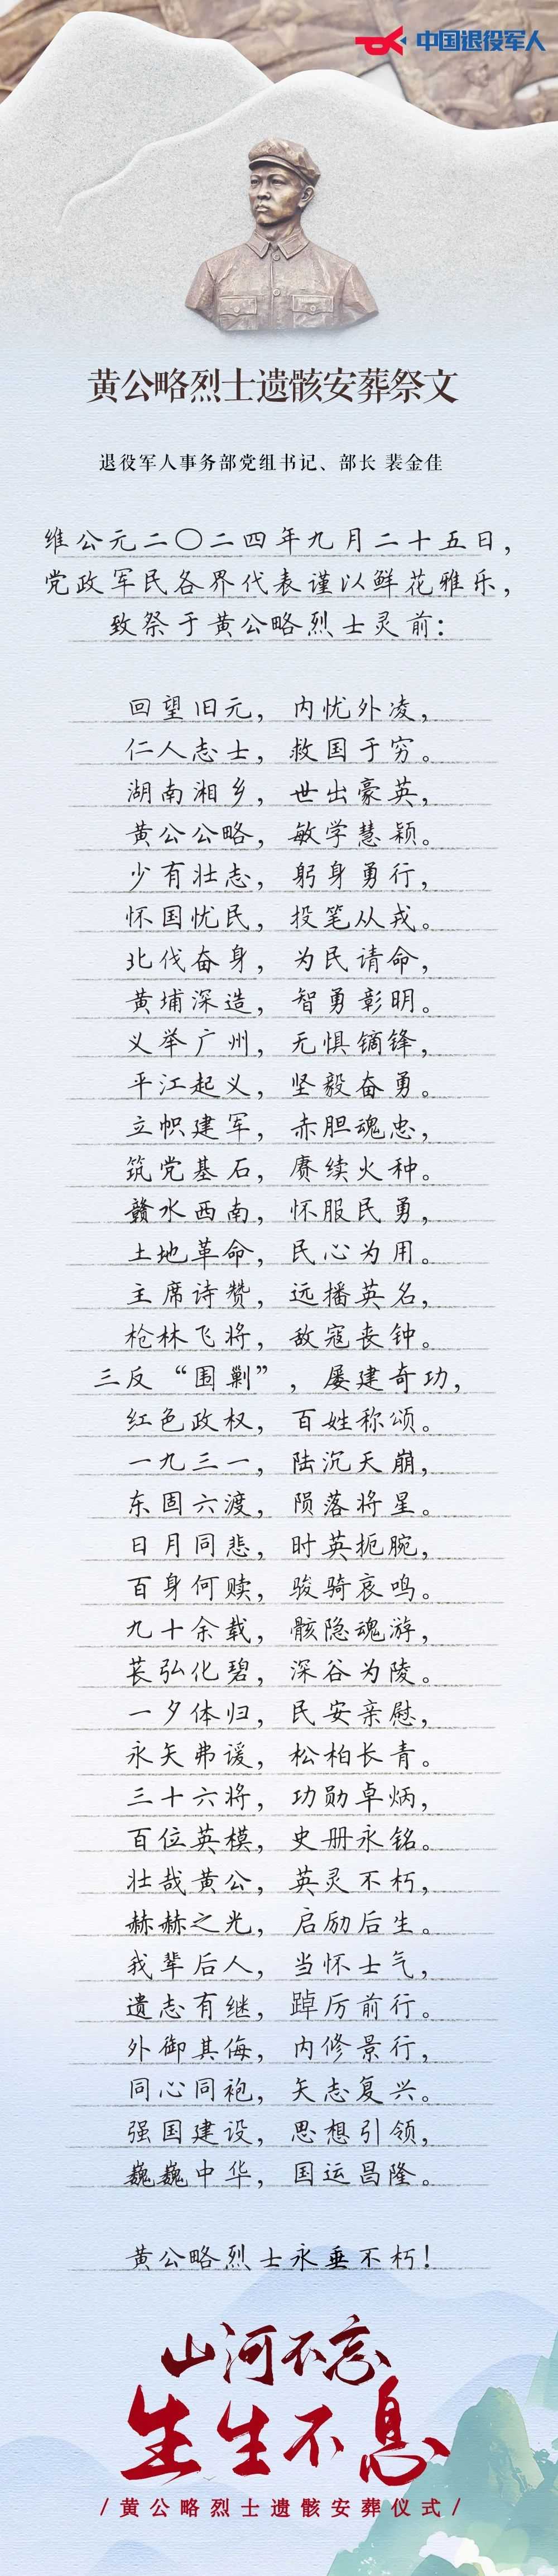 中国退役军人
黄公略烈士遗骸安葬祭文
退役军人事务部党组书记、部长 裴金佳
维公元二〇二四年九月二十五日，
党政军民各界代表谨以鲜花雅乐，
致祭于黄公略烈士灵前：
回望旧元，内忧外凌，
仁人志士，救国于穷。
湖南湘乡，世出豪英，
黄公公略，敏学慧颖。
少有壮志，躬身勇行，
怀国忧民，投笔从戎。
北伐奋身，为民请命，
黄埔深造，智勇彰明。
义举广州，无惧镝锋，
平江起义，坚毅奋勇。
立帜建军，赤胆魂忠，
筑党基石，赓续火种。
赣水西南，怀服民勇，
土地革命，民心为用。
主席诗赞，远播英名，
枪林飞将，敌寇丧钟。
三反“围剿”，屡建奇功，
红色政权，百姓称颂。
一九三一，陆沉天崩，
东固六渡，陨落将星。
日月同悲，时英扼腕，
百身何赎，骏骑哀鸣。
九十余载，骸隐魂游，
苌弘化碧，深谷为陵。
一夕体归，民安亲慰，
永矢弗谖，松柏长青。
三十六将，功勋卓炳，
百位英模，史册永铭。
壮哉黄公，英灵不朽，
赫赫之光，启励后生。
我辈后人，当怀士气，
遗志有继，踔厉前行。
外御其侮，内修景行，
同心同袍，矢志复兴。
强国建设，思想引领，
巍巍中华，国运昌隆。
黄公略烈士永垂不朽！
山河不忘
生生不息
/黄公略烈士遗骸安葬仪式/